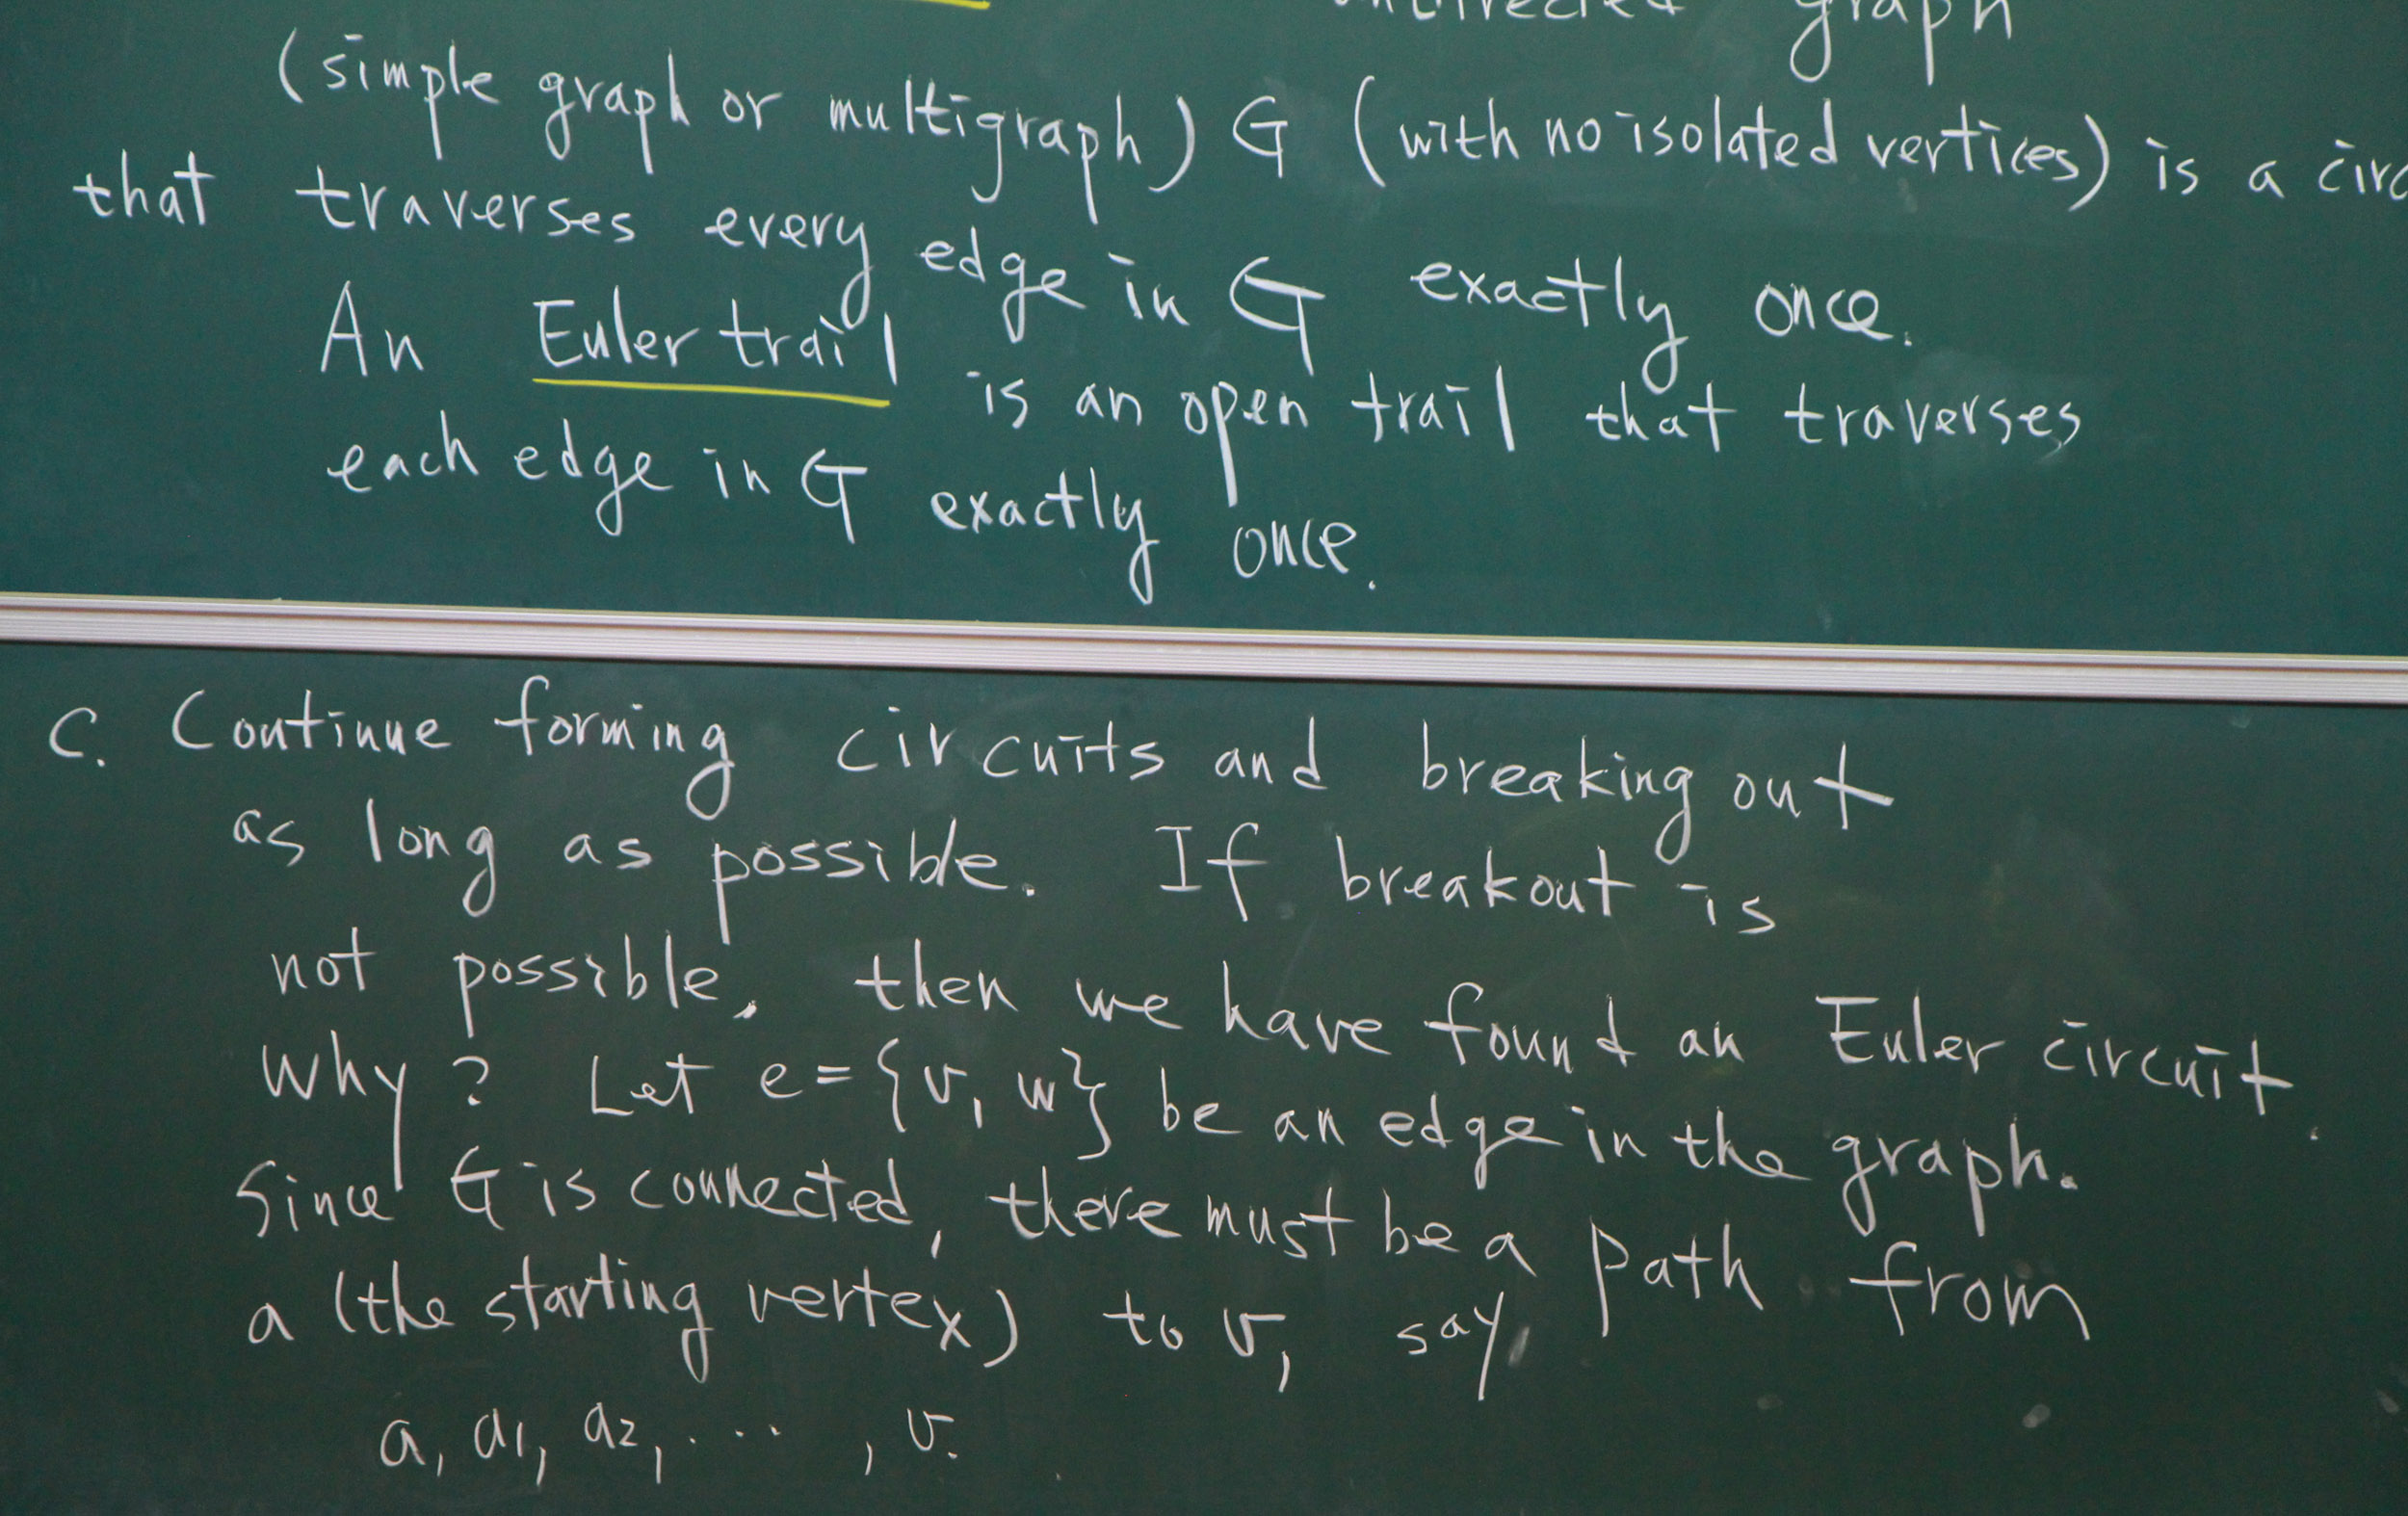 graph
(simple graph or multigraph) G (with no isolated vertices) is a
that traverses every edge in G exactly once.
An Euler trail is an open trail that traverses
each edge in G exactly once.
C. Continue forming circuits and breaking out
as long as possible. If breakout is
not possible, then we have found an Euler circuit.
Why? Let e={v, w} be an edge in the graph.
Since G is connected, there must be a path from
a (the starting vertex) to v, say,
a, a1, a2, ... , v.